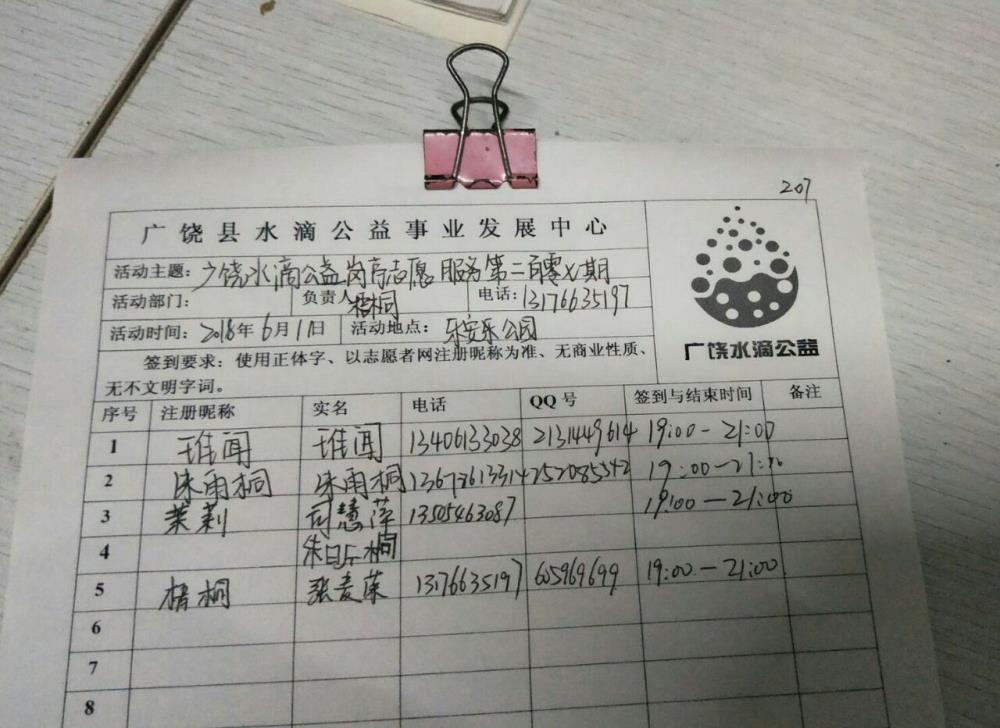 207
广饶县水滴公益事业发展中心
活动主题：广饶水滴公益岗亭志愿服务第二百零七期
活动部门： 负责人 梧桐 电话：13176635197
活动时间：2018年6月1日 活动地点：乐安乐公园
广饶水滴公益
签到要求：使用正体字、以志愿者网注册昵称为准、无商业性质、
无不文明字词。
序号 注册昵称 实名 电话 QQ号 签到与结束时间 备注
1 13406133038 2131449614 19:00-21:00
2 朱雨桐 朱雨桐 19:00-21:00
3 茉莉 司慧萍 13505463087 19:00-21:00
4
5 梧桐 13176635197 605969699 19:00-21:00
6
7
8